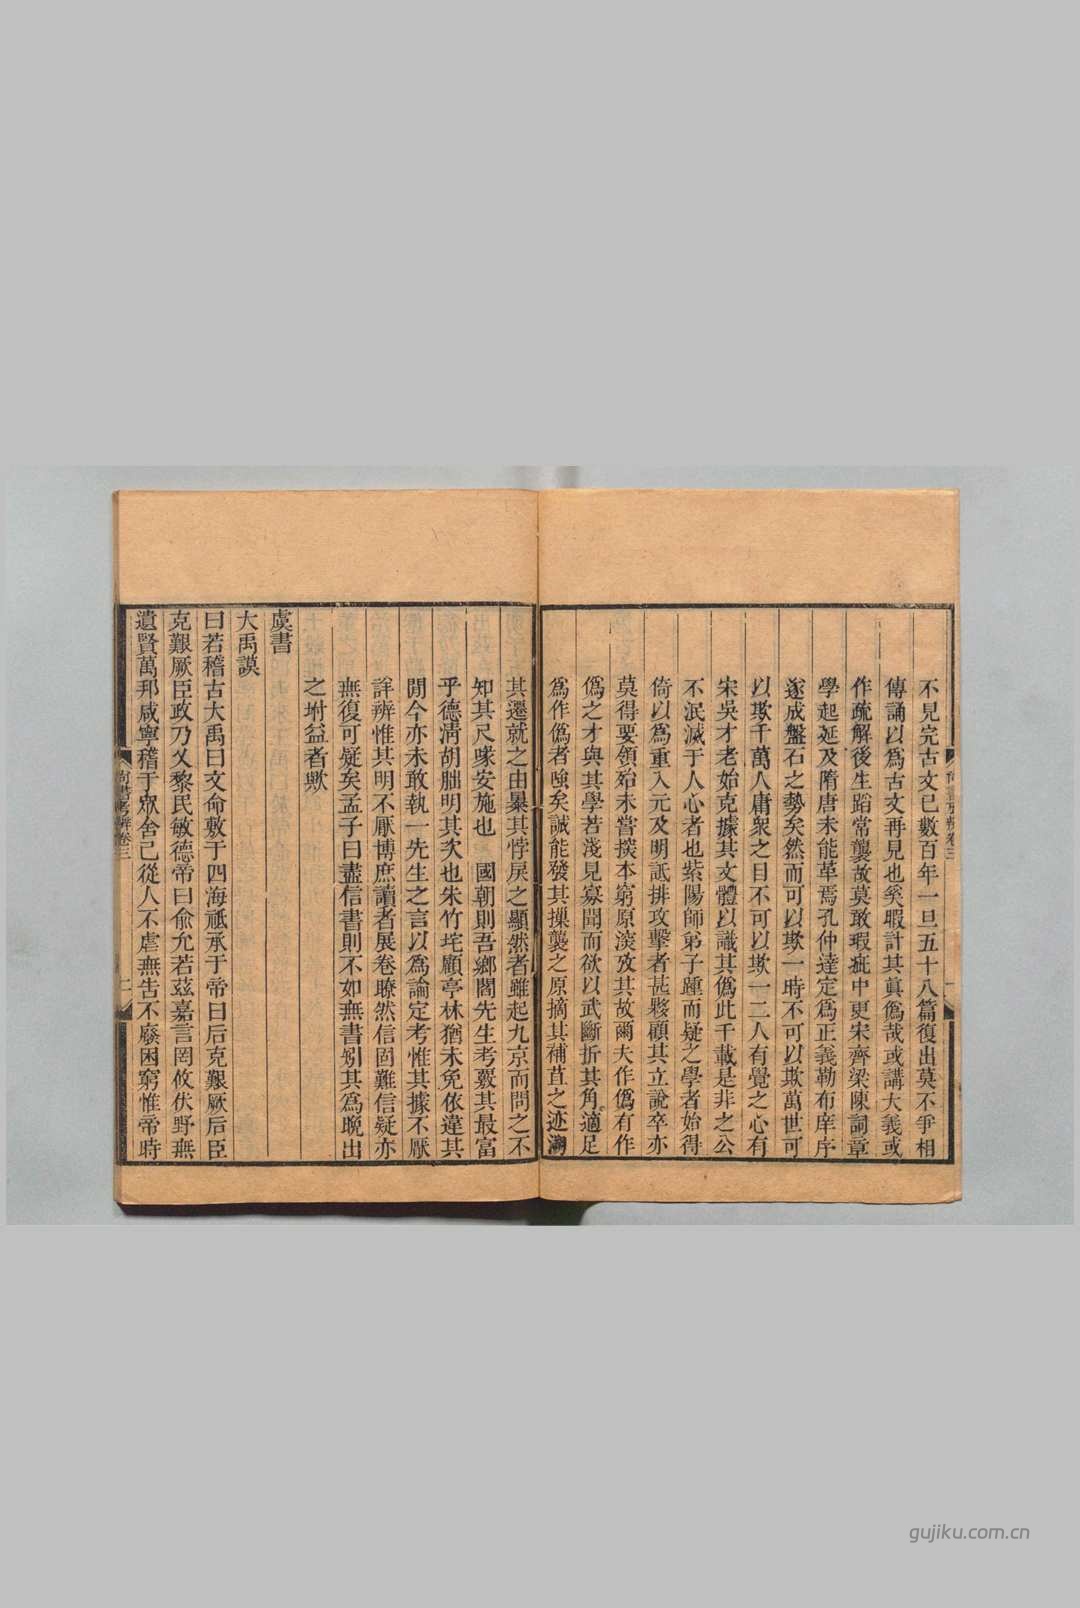 不見完古文已數百年一旦五十八篇復出莫不爭相
傳誦以爲古文再見也奚暇計其眞僞哉或講大義或
作疏解後生蹈常襲故莫敢瑕疵中更宋齊梁陳詞章
學起延及隋唐未能革焉孔仲達定爲正義勒布庠序
遂成盤石之勢矣然而可以欺一時不可以欺萬世可
以欺千萬人庸衆之目不可以欺一二人有覺之心有
宋吳才老始克據其文體以識其僞此千載是非之公
不泯滅于人心者也紫陽師弟子踵而疑之學者始得
倚以爲重入元及明詆排攻擊者甚夥顧其立說卒亦
莫得要領始未嘗探本窮原滾攷其故爾夫作僞有作
僞之才與其學若淺見寡聞而欲以武斷折其角適足
爲作僞者嗤矣誠能發其摷襲之原摘其補苴之迹溯
其遷就之由暴其悖戾之顯然者雖起九京而問之不
知其尺喙安施也　國朝則吾鄉閻先生考覈其最富
乎德清胡朏明其次也朱竹垞顧亭林猶未免依違其
閒今亦未敢執一先生之言以爲論定考惟其據不厭
詳辨惟其明不厭博庶讀者展卷瞭然信固難信疑亦
無復可疑矣孟子曰盡信書則不如無書矧其爲晚出
之坿益者歟
虞書
大禹謨
曰若稽古大禹曰文命敷于四海祗承于帝曰后克艱厥后臣
克艱厥臣政乃乂黎民敏德帝曰俞允若茲嘉言罔攸伏野無
遺賢萬邦咸寧稽于眾舍己從人不虐無告不廢困窮惟帝時
尚書考辨卷三
二
gujiku.com.cn